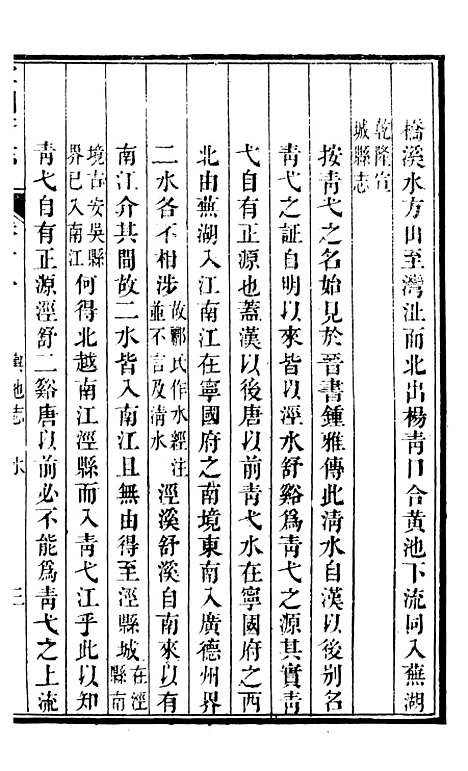 橋溪水方山至灣沚而北出楊青口合黃池下流同入蕪湖
乾隆宣
城縣志
按青弋之名始見於晉書鍾雅傳此清水自漢以後別名
青弋之証自明以來皆以涇水舒谿為青弋之源其實青
弋自有正源也蓋漢以後唐以前青弋水在寧國府之西
北由蕪湖入江南江在寧國府之南境東南入廣德州界
二水各不相涉故酈氏作水經注
並不言及清水涇溪舒溪自南來以有
南江介其間故二水皆入南江且無由得至涇縣城在涇
縣南
境古安吳縣
界已入南江何得北越南江涇縣而入青弋江乎此以知
青弋自有正源涇舒二谿唐以前必不能為青弋之上流
輿地志 水 三